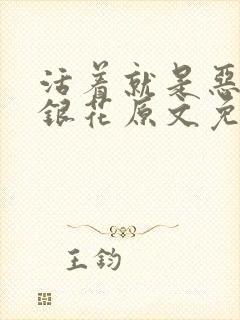 活着就是恶
银花原文免
王钧